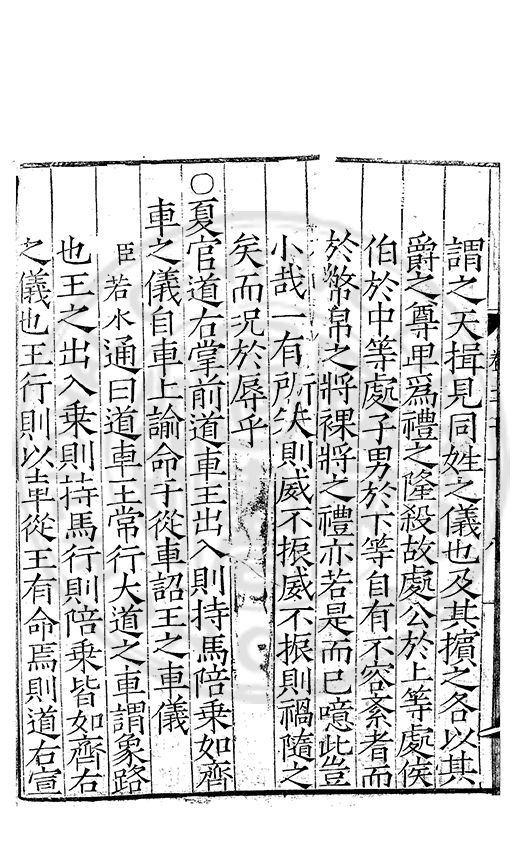 謂之天揖見同姓之儀也及其擯之各以其
爵之尊卑爲禮之隆殺故處公於上等處侯
伯於中等處子男於下等自有不容紊者而
於幣帛之將祼將之禮亦若是而已噫此豈
小哉一有所失則威不振威不振則禍隨之
矣而況於辱乎
○夏官道右掌前道車王出入則持馬陪乗如齊
車之儀自車上諭命于從車詔王之車儀
臣若水通曰道車王常行大道之車謂象路
也王之出入乗則持馬行則陪乗皆如齊右
之儀也王行則以車從王有命焉則道右宣